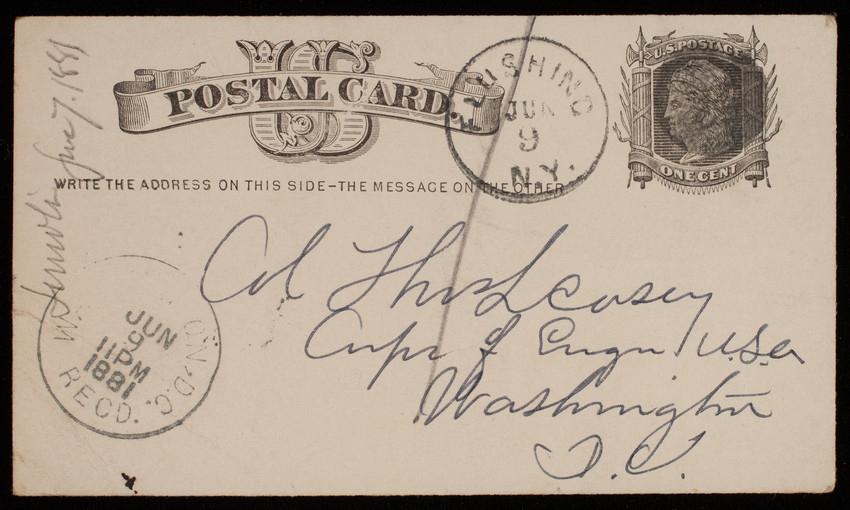 US
POSTAL CARD
U.S. POSTAGE
ONE CENT
FLUSHING
JUN
9
N.Y.
WRITE THE ADDRESS ON THIS SIDE-THE MESSAGE ON THE OTHER
Col Thos L Casey
Corps of Engrs U.S.A
Washington
D.C.
W ON, D.C.
JUN
9
11 PM
1881
RECD.
June 7. 1881